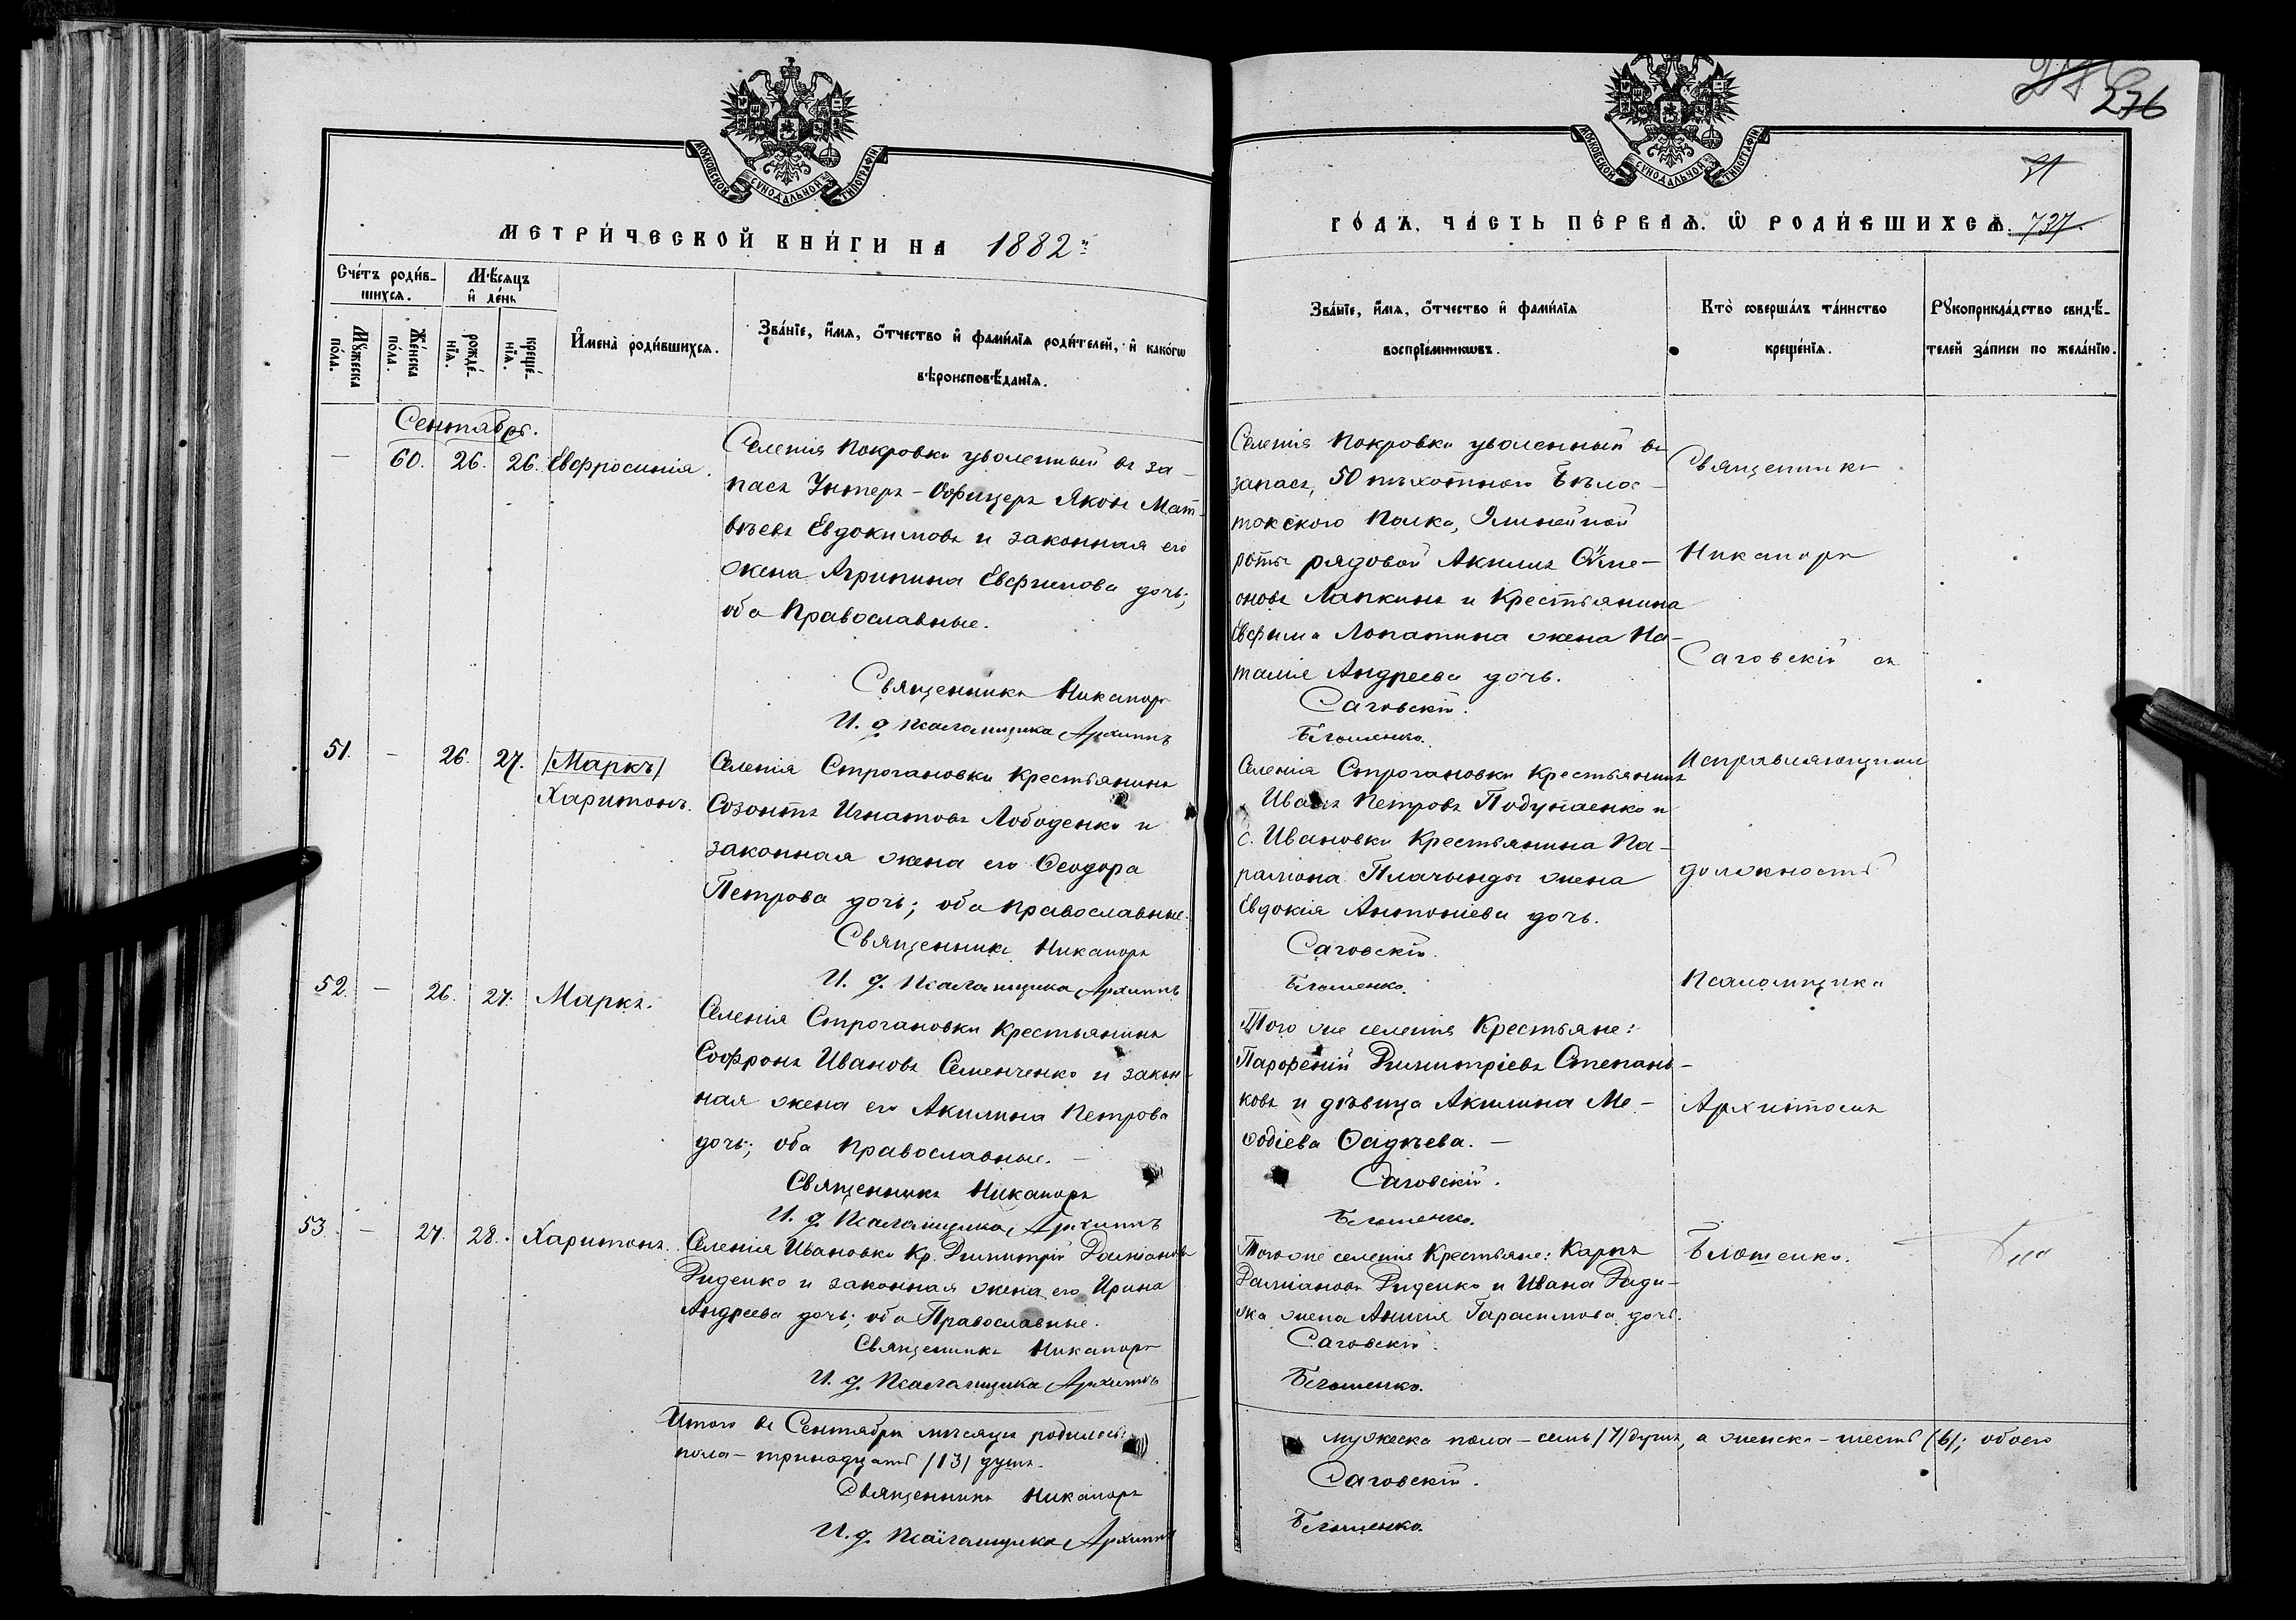 МОСКОВСКОЙ СѴНОДАЛЬНОЙ ТИПОГРАФІИ
МЕТРИ́ЧЕСКОЙ КНИ́ГИ НА 1882й
Сче́тъ роди́в-
шихсѧ.
Мѣ́сѧцъ
и҆ де́нь
Мꙋ́жеска
по́ла.
Же́нска
по́ла.
рожде́-
нїѧ.
креще́-
нїѧ.
И҆мена̀ роди́вшихсѧ.
Зва́нїе, и҆́мѧ, ѻ҆́тчество и҆ фами́лїѧ роди́телей, и҆ како́гѡ
вѣроисповѣ́данїѧ.
Сентябрь.
— 60. 26. 26. Евфросинія.
Селенія Покровки уволенный въ за-
пасъ Унтеръ-Офицеръ Яковъ Мат-
вѣевъ Евдокимовъ и законная его
жена Агрипина Евфимова дочь;
оба Православные.
Священникъ Никаноръ
И. д. Псаломщика Архиппъ
51. — 26. 27. /Маркъ/
Харитонъ.
Селенія Строгановки Крестьянинъ
Созонтъ Игнатовъ Лободенко и
законная жена его Ѳеодора
Петрова дочь; оба православные.
Священникъ Никаноръ
И. д. Псаломщика Архиппъ
52. — 26. 27. Маркъ.
Селенія Строгановки Крестьянинъ
Софронъ Ивановъ Семенченко и закон-
ная жена его Акилина Петрова
дочь; оба православные. —
Священникъ Никаноръ
И. д. Псаломщика Архиппъ
53. — 27. 28. Харитонъ.
Селенія Ивановки Кр. Димитрій Даміановъ
Диденко и законная жена его Ирина
Андреева дочь; оба Православные.
Священникъ Никаноръ
И. д. Псаломщика Архиппъ
Итого въ Сентябрѣ мѣсяцѣ родилось:
пола — тринадцать /13/ душъ.
Священникъ Никаноръ
И. д. Псаломщика Архиппъ
276
МОСКОВСКОЙ СѴНОДАЛЬНОЙ ТИПОГРАФІИ
21
ГО́ДЪ, ЧА́СТЬ ПЕ́РВАѦ, Ѡ҆ РОДИ́ВШИХСѦ. 737.
Зва́нїе, и҆́мѧ, ѻ҆́тчество и҆ фами́лїѧ
воспрїе́мникѡвъ.
Кто̀ соверша́лъ та́инство
креще́нїѧ.
Рꙋкоприкла́дство свидѣ́-
телей за́писи по жела́нїю.
Селенія Покровки уволенный въ
запасъ, 50 пѣхотнаго Бѣлос-
токскаго Полка, линейной
роты рядовой Акимъ Симе-
оновъ Лапкинъ и Крестьянина
Евфима Лопатина жена На-
талія Андреева дочь.
Саговскій.
Блошенко.
Селенія Строгановки Крестьянинъ
Иванъ Петровъ Подунаенко и
с. Ивановки Крестьянина Па-
рамона Плачынды жена
Евдокія Антоніева дочь.
Саговскій.
Блошенко.
Того же селенія Крестьяне:
Парфеній Димитріевъ Степань-
ковъ и дѣвица Акилина Ме-
ѳодіева Фадѣева. —
Саговскій.
Блошенко.
Того же селенія Крестьяне: Карпъ
Даміановъ Диденко и Ивана Ради-
жена Анисія Гарасимова дочь.
Саговскій.
Блошенко.
мужеска пола — семь /7/ душъ, а женска — шесть /6/; обоего
Саговскій.
Блошенко.
Священникъ
Никаноръ
Саговскій съ
Исправляющимъ
должность
Псаломщика
Архиппомъ
Блошенко.